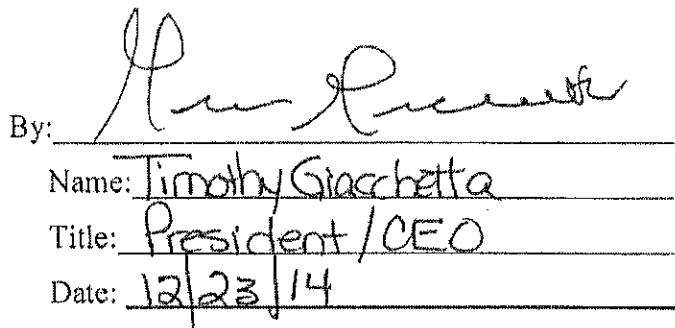 By:
Name: Timothy Giacchetta
Title: President/CEO
Date: 12/23/14